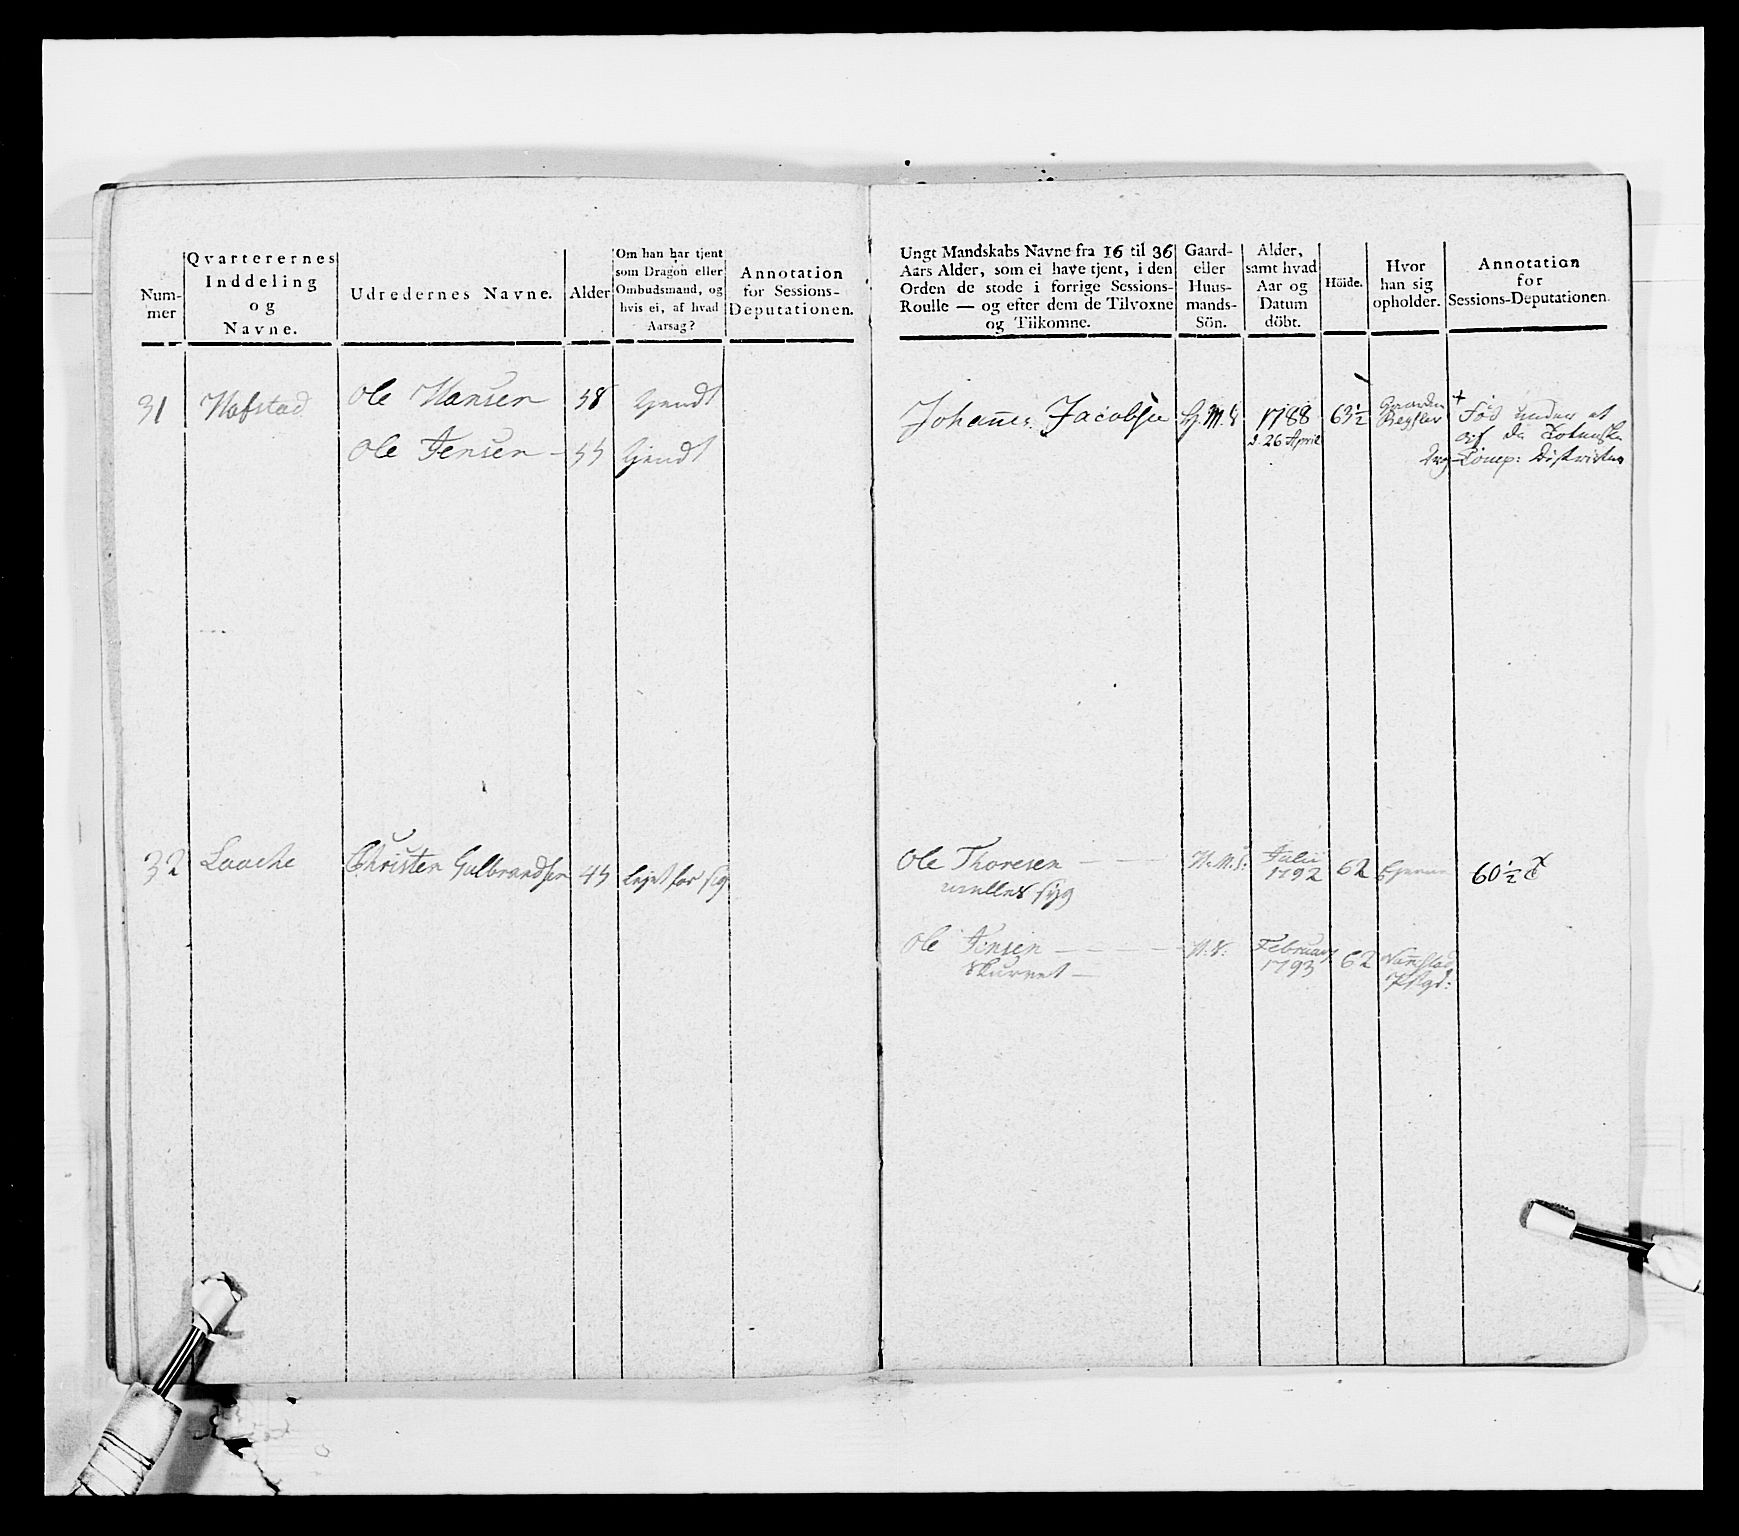 Num-
mer
Qvarterernes
Inddeling
og
Navne.
Udredernes Navne.
Alder
Om han har tjent
som Dragon eller
Ombudsmand, og
hvis ei, af hvad
Aarsag?
Annotation
for Sessions-
Deputationen.
31 Hafstad Ole Hansen 58 tjendt
Ole Jensen 55 tjendt
32 Laache Christen Gulbrandsen 45 lejet for sig
Ungt Mandskabs Navne fra 16 til 36
Aars Alder, som ei have tjent, i den
Orden de stode i forrige Sessions-
Roulle — og efter dem de Tilvoxne
og Tilkomne.
Gaard-
eller
Huus-
mands-
Sön.
Alder,
samt hvad
Aar og
Datum
döbt.
Höide.
Hvor
han sig
opholder.
Annotation
for
Sessions-Deputationen.
Johannes Jacobsen 1788 63½
d. 26 April
Föd under et
af de
Districter
Ole Thoresen H. M. S: Julii 62 Hjemme 60½
1792
syg
Ole Jensen Februar 62
1793